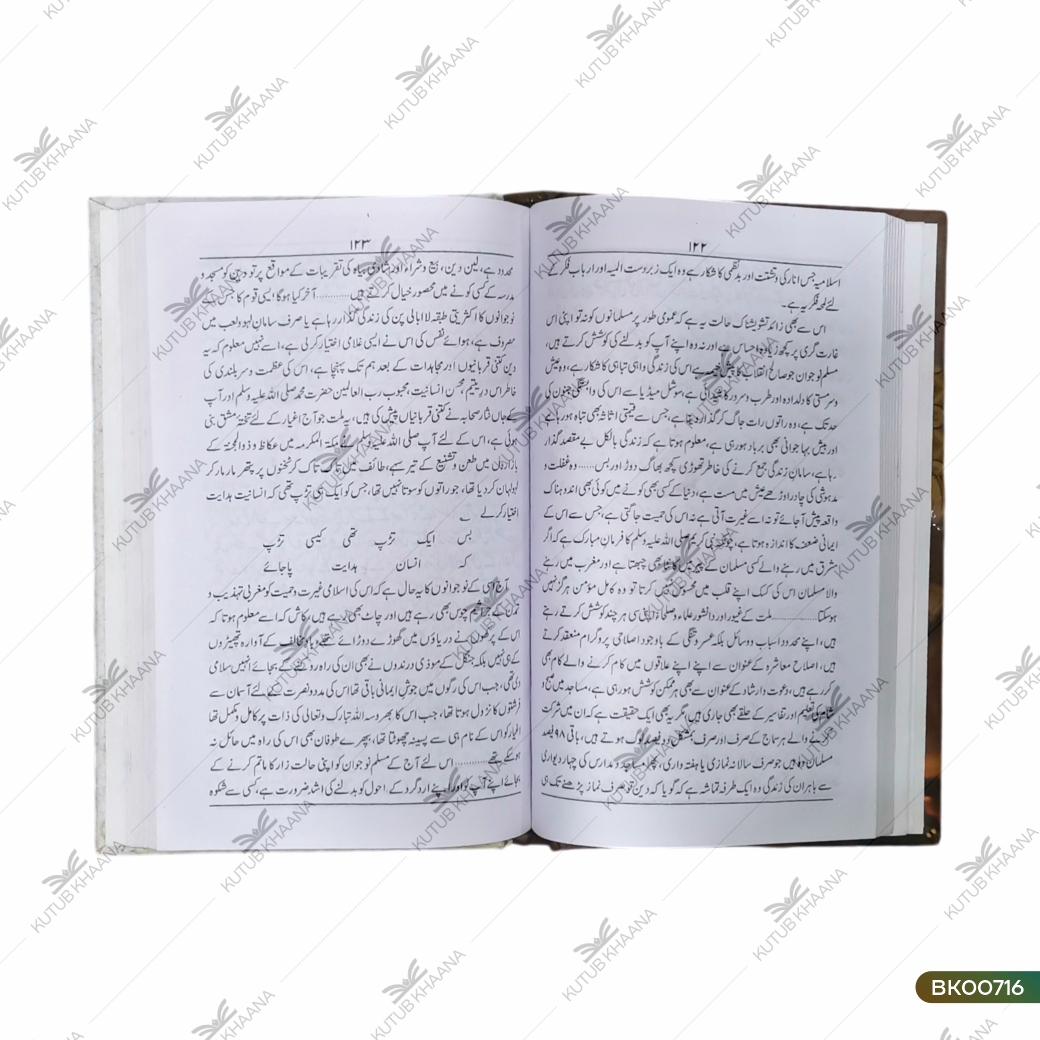 ۱۲۲
اسلامیہ جس انارکی و تشتت اور بدنظمی کا شکار ہے وہ ایک زبردست المیہ اور ارباب فکر کے
لئے لمحہ فکریہ ہے۔
اس سے بھی زائد تشویشناک حالت یہ ہے کہ عمومی طور پر مسلمانوں کو نہ تو اپنی اس
غارت گری پر کچھ زیادہ احساس ہے اور نہ وہ اپنے آپ کو بدلنے کی کوشش کرتے ہیں،
مسلم نوجوان جو صالح انقلاب کا پیش خیمہ ہے اس کی زندگی واہی تباہی کا شکار ہے، وہ عیش
و سرمستی کا دلدادہ اور طرب و سرور کا شیدائی ہے، سوشل میڈیا سے اس کی وابستگی جنون کی
حد تک ہے، وہ راتوں رات جاگ کر گذار دیتا ہے جس سے قیمتی اثاثہ بھی تباہ ہو رہا ہے
اور بیش بہا جوانی بھی برباد ہورہی ہے، معلوم ہوتا ہے کہ زندگی بالکل بے مقصد گذار
رہا ہے، سامانِ زندگی جمع کرنے کی خاطر تھوڑی کچھ بھاگ دوڑ اور بس...... وہ غفلت و
مدہوشی کی چادر اوڑھے عیش میں مست ہے، دنیا کے کسی بھی کونے میں کوئی بھی اندوہناک
واقعہ پیش آجائے تو نہ اسے غیرت آتی ہے نہ اس کی حمیت جاگتی ہے، جس سے اس کے
ایمانی ضعف کا اندازہ ہوتا ہے، چونکہ نبی کریم صلی اللہ علیہ وسلم کا فرمان مبارک ہے کہ اگر
مشرق میں رہنے والے کسی مسلمان کے پیر میں کانٹا بھی چبھتا ہے اور مغرب میں رہنے
والا مسلمان اس کی کسک اپنے قلب میں محسوس نہیں کرتا تو وہ کامل مؤمن ہرگز نہیں
ہوسکتا............... ملت کے غیور اور دانشور علماء و صلحاء اپنی سی ہر چند کوشش کرتے رہتے
ہیں، اپنے محدود اسباب و وسائل بلکہ عسر و تنگی کے باوجود اصلاحی پروگرام منعقد کرتے
ہیں، اصلاح معاشرہ کے عنوان سے اپنے اپنے علاقوں میں کام کرنے والے کام بھی
کررہے ہیں، دعوت و ارشاد کے عنوان سے بھی ہر ممکن کوشش ہورہی ہے، مساجد میں صبح و
شام کی تعلیم اور تفاسیر کے حلقے بھی جاری ہیں، مگر یہ بھی ایک حقیقت ہے کہ ان میں شرکت
کرنے والے ہر سماج کے صرف اور صرف بمشکل دو فیصد لوگ ہوتے ہیں، باقی ۹۸ فیصد
مسلمان وہ ہیں جو صرف سالانہ نمازی یا ہفتہ واری، پھر مساجد و مدارس کی چہار دیواری
سے باہر ان کی زندگی وہ ایک طرفہ تماشہ ہے کہ گویا کہ دین تو صرف نماز پڑھنے تک ہی
۱۲۳
محدود ہے، لین دین، بیع و شراء اور شادی بیاہ کی تقریبات کے مواقع پر تو دین کو مسجد و
مدرسہ کے کسی کونے میں محصور خیال کرتے ہیں............ آخر کیا ہوگا ایسی قوم کا جس کے
نوجوانوں کا اکثریتی طبقہ لاابالی پن کی زندگی گذار رہا ہے یا صرف سامان لہو و لعب میں
مصروف ہے، ہوائے نفس کی اس نے ایسی غلامی اختیار کرلی ہے، اسے نہیں معلوم کہ یہ
دین کتنی قربانیوں اور مجاہدات کے بعد ہم تک پہنچا ہے، اس کی عظمت و سربلندی کی
خاطر اس در یتیم، محسن انسانیت، محبوب رب العالمین حضرت محمد صلی اللہ علیہ وسلم اور آپ
کے جاں نثار صحابہ نے کتنی قربانیاں پیش کی ہیں، یہ ملت جو آج اغیار کے لئے تختۂ مشق بنی
ہوئی ہے، اس کے لئے آپ صلی اللہ علیہ وسلم نے مکۃ المکرمہ میں عکاظ و ذوالمجنۃ کے
بازاروں میں طعن و تشنیع کے تیر سہے، طائف میں تاک تاک کر ٹخنوں پر پتھر مار مار کر
لہولہان کردیا تھا، جو راتوں کو سوتا نہیں تھا، جس کو ایک ہی تڑپ تھی کہ انسانیت ہدایت
اختیار کرلے
بس ایک تڑپ تھی کیسی تڑپ
کہ انسان ہدایت پاجائے
آج اسی کے نوجوانوں کا یہ حال ہے کہ اس کی اسلامی غیرت و حمیت کو مغربی تہذیب و
تمدن کے جراثیم چوس بھی رہے ہیں اور چاٹ بھی رہے ہیں، کاش کہ اسے معلوم ہوتا کہ
اس کے پرکھوں نے دریاؤں میں گھوڑے دوڑائے تھے، باد مخالف کے آوارہ تھپیڑوں
کے ہی نہیں بلکہ جنگل کے موذی درندوں نے بھی ان کی راہ روکنے کے بجائے انہیں سلامی
دی تھی، جب اس کی رگوں میں جوشِ ایمانی باقی تھا اس کی مدد و نصرت کے لئے آسمان سے
فرشتوں کا نزول ہوتا تھا، جب اس کا بھروسہ اللہ تبارک و تعالی کی ذات پر کامل و مکمل تھا
اغیار کو اس کے نام ہی سے پسینہ چھوٹتا تھا، بپھرے طوفان بھی اس کی راہ میں حائل نہ
ہوسکے تھے............ اس لئے آج کے مسلم نوجوان کو اپنی حالت زار کا ماتم کرنے کے
بجائے اپنے آپ کو اور اپنے ارد گرد کے ماحول کو بدلنے کی اشد ضرورت ہے، کسی سے شکوہ
BK00716
KUTUB KHAANA